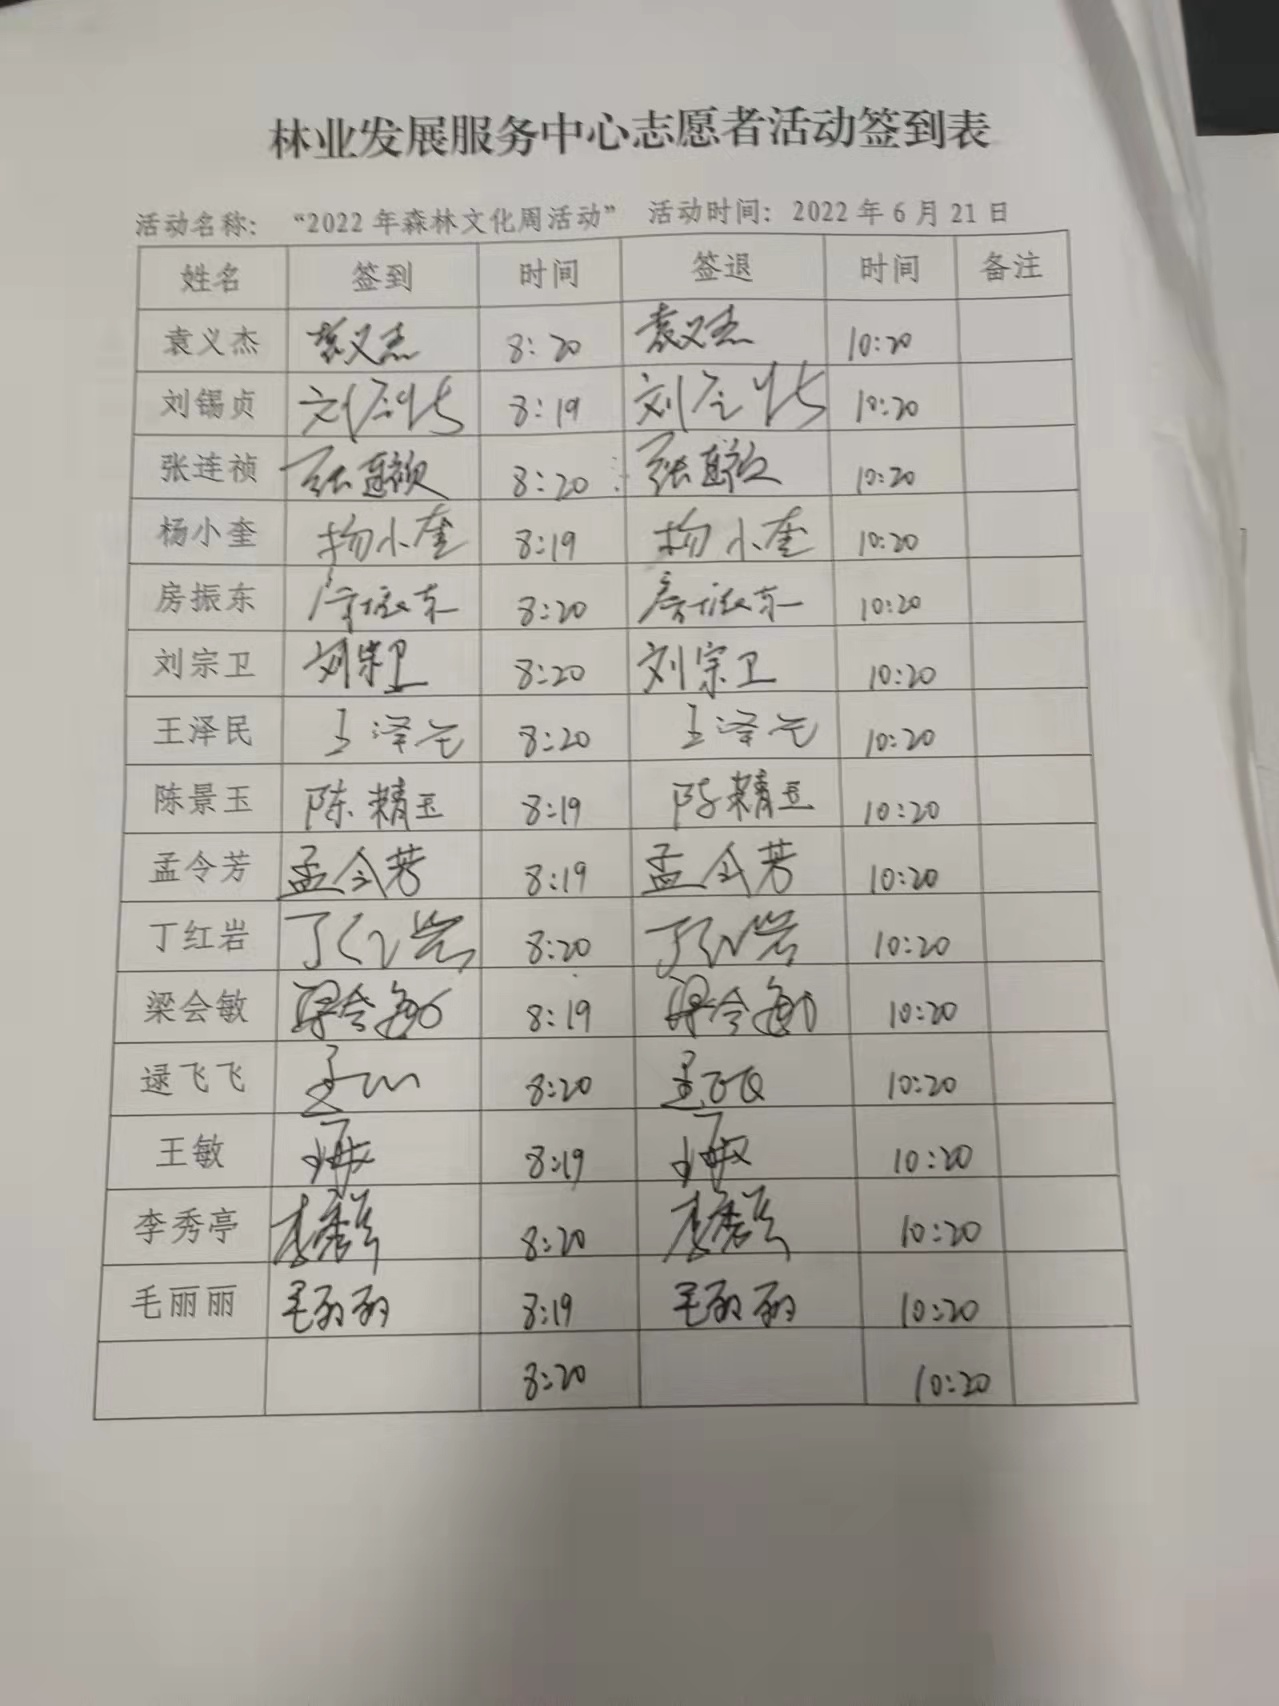 林业发展服务中心志愿者活动签到表
活动名称： “2022年森林文化周活动” 活动时间：2022年6月21日
姓名 签到 时间 签退 时间 备注
袁义杰 袁义杰 8:20 袁义杰 10:20
刘锡贞 8:19 10:20
张连祯 张连祯 8:20 张连祯 10:20
杨小奎 杨小奎 8:19 杨小奎 10:20
房振东 房振东 8:20 房振东 10:20
刘宗卫 刘宗卫 8:20 刘宗卫 10:20
王泽民 王泽民 8:20 王泽民 10:20
陈景玉 陈精玉 8:19 陈精玉 10:20
孟令芳 孟令芳 8:19 孟令芳 10:20
丁红岩 丁红岩 8:20 丁红岩 10:20
梁会敏 梁会敏 8:19 梁会敏 10:20
逯飞飞 8:20 10:20
王敏 8:19 10:20
李秀亭 李秀亭 8:20 李秀亭 10:20
毛丽丽 毛丽丽 8:19 毛丽丽 10:20
8:20 10:20